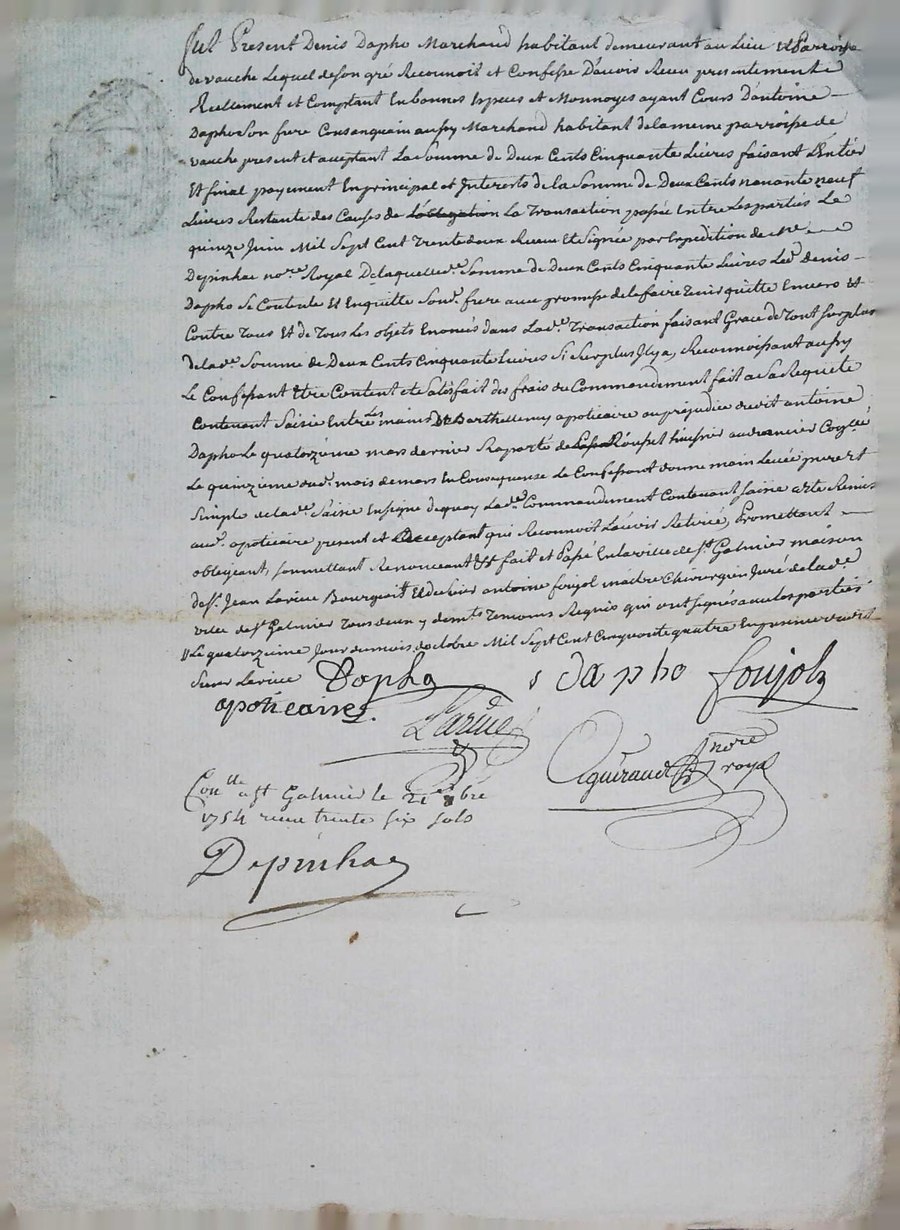 fut Present Denis Dapho Marchand habitant demeurant au Lieu et Parroisse
de vauche Lequel de son gré Reconnoit et Confesse D'avoir Receu presentement
Reellement et Comptant En bonnes Especes et Monnoyes ayant Cours D'antoine
Dapho Son frere Consanguain aussy Marchand habitant de la meme parroisse de
vauche present et aceptant La Somme de Deux Cents Cinquante Livres faisant L'Entier
Et final payement En principal et Interets de la Somme de Deux Cents nonante neuf
Livres Restante des Causes de La Transaction passée Entre Les parties Le
quinze Juin Mil Sept Cent Trente deux Receue Et Signée par Expedition de Me
Depinhac nore Royal De laquelle de Somme de Deux Cents Cinquante Livres Led Denis
Dapho Se Contente Et En quitte Son d frere avec promesse de le faire Tenir quitte Envers Et
Contre Tous Et de Tous Les objets Enoncés dans La de Transaction faisant Grace de Tout Surplus
de la de Somme de Deux Cents Cinquante Livres Si Surplus Il y a, Reconnoissant aussy
Le Confessant Etre Content et Satisfait des frais du Commandement fait a Sa Requete
Contenant Saisie Entre Les mains De Barthellemy apoticaire au prejudice dudit antoine
Dapho Le quatorzieme mars dernier Raporté de Roupet huissier audiancier Conlé
Le quinzieme dud mois de mars En Consequense Le Confessant donne main Levée pure et
Simple de la de Saisie En Signe de quoy La de Commandement Contenant Saisie a eté Remis
aud apoticaire present et aceptant qui Reconnoit L'avoir Retiré, Promettant
obligeant, soumettant Renonceant fait et Passé En la ville de St Galmier maison
de Sr Jean Lariue Bourgeois Et de Sieur antoine foujols maitre Chirurgien Juré de la de
ville de St Galmier Tous deux y demts Temoins Requis qui ont signés avec Les parties
Le quatorzieme Jour du mois d'octobre Mil Sept Cent Cinquante quatre
Sieur Lariue Dapho s dapho foujols
apoticaires.
Lariue
Aguiraud nore royal
Conlle a st Galmier le 21 8bre
1754 receu trente six sols
Depinhac